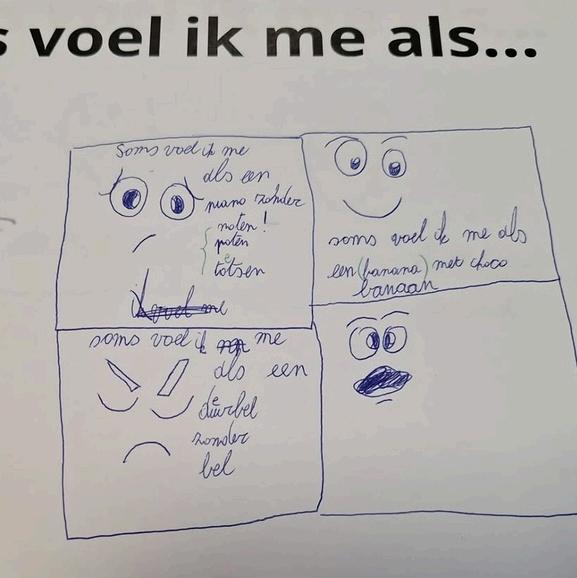 s voel ik me als...
soms voel ik me
als een
piano zonder
noten!
poten
totsen
soms voel ik me als
een (banana) met choco
banaan
soms voel ik me
als een
deurbel
zonder
bel